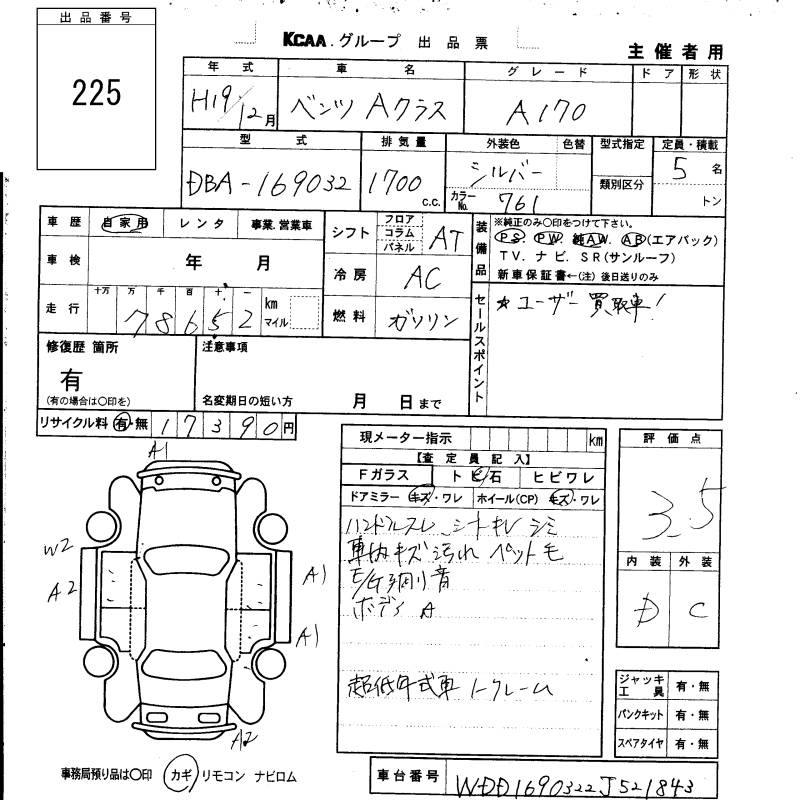 出品番号
225
KCAA.グループ 出品票
主催者用
年式 車名 グレード ドア 形状
H19/12月 ベンツ Aクラス A170
型式 排気量 外装色 色替 型式指定 定員・積載
DBA-169032 1700 c.c. シルバー 5名
カラーNo. 761 類別区分 トン
車歴 自家用 レンタ 事業.営業車
シフト フロア コラム パネル AT
装備品 ※純正のみ○印をつけて下さい。
PS. PW. 純AW. AB(エアバック)
TV. ナビ. SR(サンルーフ)
新車保証書←(注)後日送りのみ
車検 年 月
冷房 AC
走行 十万 万 千 百 十 一
78652 km マイル
燃料 ガソリン
セールスポイント ☆ユーザー買取車!
修復歴 箇所
有
(有の場合は○印を)
注意事項
名変期日の短い方 月 日まで
リサイクル料 有・無 17390円
現メーター指示 km
【査定員記入】
Fガラス トビ石 ヒビワレ
ドアミラー キズ・ワレ ホイール(CP) キズ・ワレ
ハンドルスレ シートキレ シミ
車内キズ汚れ ペット毛
E/G
音
ボディ A
超低年式車 ノークレーム
評価点
3.5
内装 外装
D C
ジャッキ工具 有・無
パンクキット 有・無
スペアタイヤ 有・無
A1
W2
A2
A1
A1
A2
事務局預り品は○印 カギ リモコン ナビロム
車台番号 WDD1690322J521843